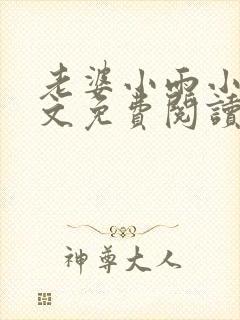 老婆小雨小
文免費閱讀
神尊大人